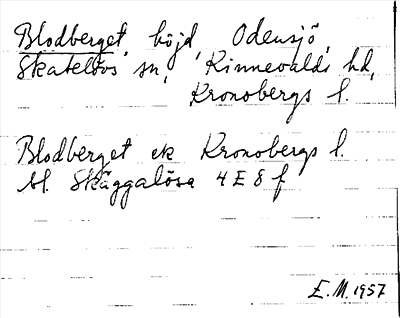 Blodberget, höjd, Odensjö,
Skatelövs sn, Kinnevalds hd,
Kronobergs l.
Blodberget ek Kronobergs l.
bl. Skäggalösa 4 E 8 f
E.M. 1957